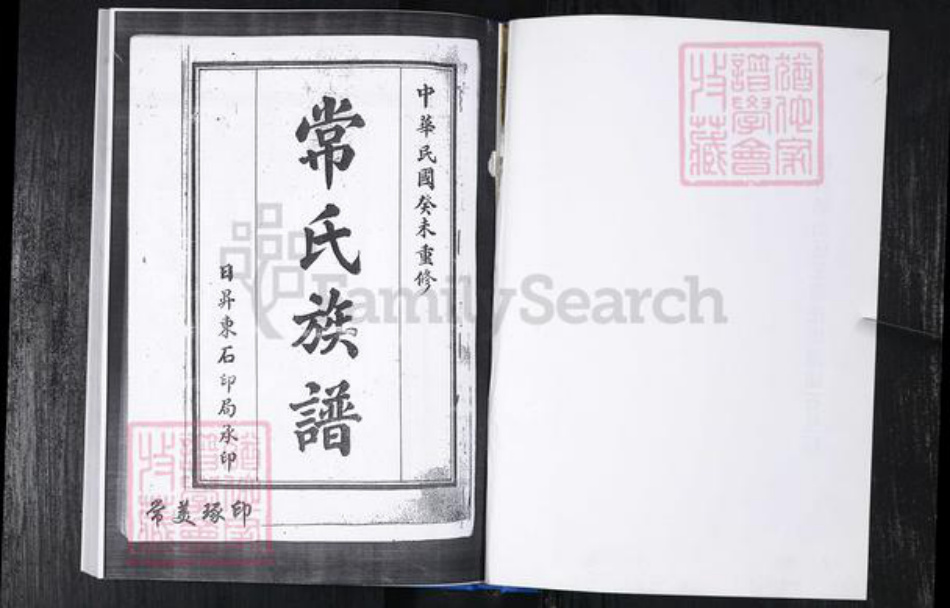 中華民國癸未重修
常氏族譜
日昇東石印局承印
常美琢印
猶他家
譜學會
收藏
FamilySearch